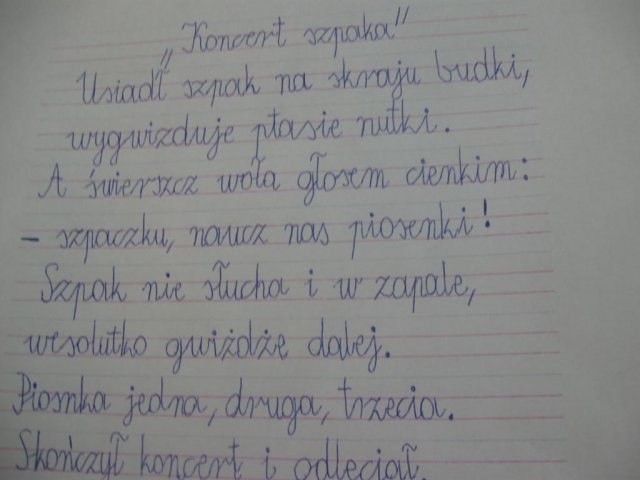 „Koncert szpaka"
Usiadł szpak na skraju budki,
wygwizduje ptasie nutki.
A świerszcz woła głosem cienkim:
- szpaczku, naucz nas piosenki!
Szpak nie słucha i w zapale,
wesolutko gwiżdże dalej.
Piosnka jedna, druga, trzecia.
Skończył koncert i odleciał.